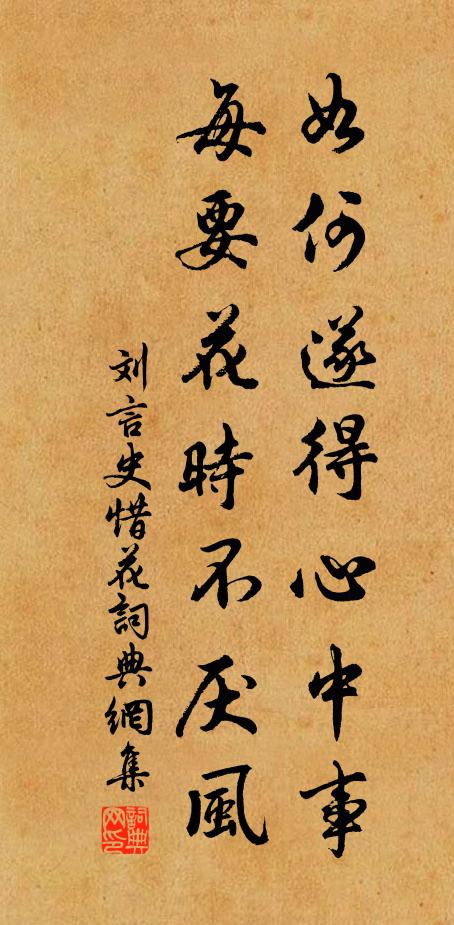 如何遂得心中事
每要花時不厌風
刘言史惜花詞典網集
詞典网印